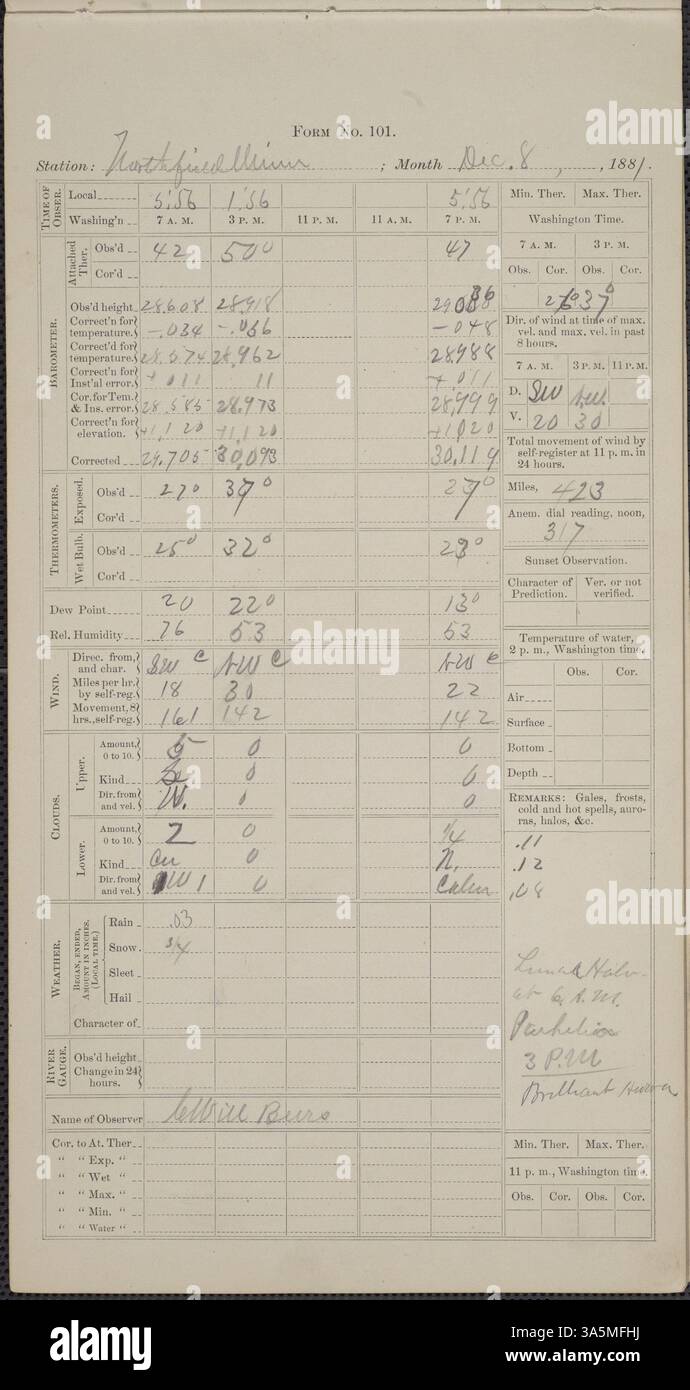 FORM No. 101.
Station: Northfield Minn ; Month Dec. 8, 1881.
TIME OF OBSER.
Local 5:56 1:56 5:56
Washing'n 7 A. M. 3 P. M. 11 P. M. 11 A. M. 7 P. M.
BAROMETER.
Attached Ther.
Obs'd 42 50° 47
Cor'd
Obs'd height 28.608
Correct'n for temperature. -.034 -.048
Correct'd for temperature. 28.574 28,962 28,988
Correct'n for Inst'al error. +.011 11 +.011
Cor. for Tem. & Ins. error. 28.585 28.973 28,999
Correct'n for elevation. +1,120 +1,120
Corrected 29.705 30,093 30,119
THERMOMETERS.
Exposed.
Obs'd 27° 37°
Cor'd
Wet Bulb.
Obs'd 25° 32°
Cor'd
Dew Point 20 22° 13°
Rel. Humidity 76 53 53
WIND.
Direc. from, and char. SW c NW c NW c
Miles per hr. by self-reg. 18 30 22
Movement, 8 hrs., self-reg. 161 142 142
CLOUDS.
Upper.
Amount, 0 to 10. 5 0 0
Kind 0 0
Dir. from and vel. W. 0 0
Lower.
Amount, 0 to 10. 2 0
Kind cu 0 N.
Dir. from and vel. W 1 0 Calm
WEATHER.
BEGAN, ENDED, AMOUNT IN INCHES. (LOCAL TIME.)
Rain .03
Snow 3/4
Sleet
Hail
Character of
RIVER GAUGE.
Obs'd height
Change in 24 hours.
Name of Observer
Cor. to At. Ther
" " Exp. "
" " Wet "
" " Max. "
" " Min. "
" " Water "
Min. Ther. Max. Ther.
Washington Time.
7 A. M. 3 P. M.
Obs. Cor. Obs. Cor.
37°
Dir. of wind at time of max. vel. and max. vel. in past 8 hours.
7 A. M. 3 P. M. 11 P. M.
D. SW N.W.
V. 20 30
Total movement of wind by self-register at 11 p. m. in 24 hours.
Miles, 423
Anem. dial reading, noon, 317
Sunset Observation.
Character of Prediction. Ver. or not verified.
Temperature of water, 2 p. m., Washington time.
Obs. Cor.
Air
Surface
Bottom
Depth
REMARKS: Gales, frosts, cold and hot spells, auroras, halos, &c.
.11
.12
.08
Lunar Halo
at 6 A.M.
Parhelion
3 P.M
Brilliant
Min. Ther. Max. Ther.
11 p. m., Washington time.
Obs. Cor. Obs. Cor.
alamy
Image ID: 3A5MFHJ
www.alamy.com